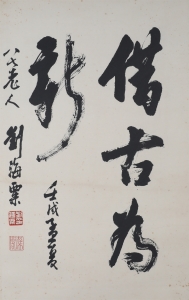 借古為
新
壬戌孟夏
八七老人 劉海粟